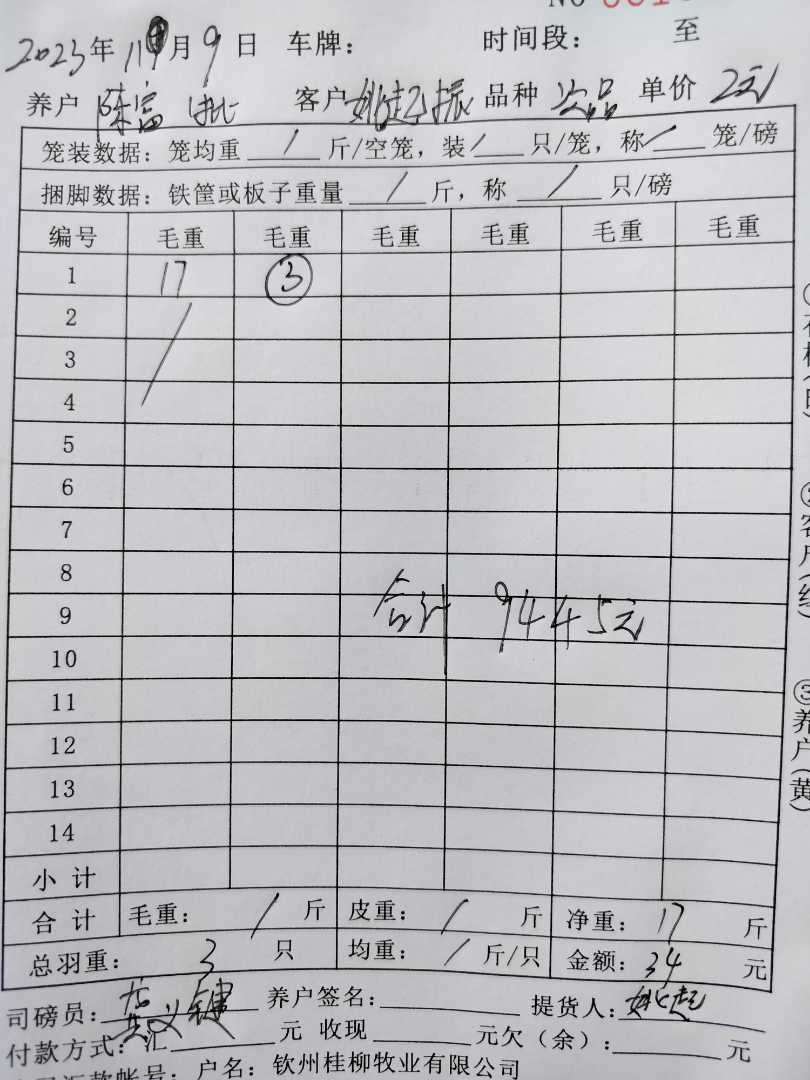 NO 001
2023年11月9日 车牌: 时间段: 至
养户 陈富 批 客户 姚起振 品种 次品 单价 2元
笼装数据: 笼均重 / 斤/空笼, 装 / 只/笼, 称 / 笼/磅
捆脚数据: 铁筐或板子重量 / 斤, 称 / 只/磅
编号 毛重 毛重 毛重 毛重 毛重 毛重
1 17 ③
2
3
4
5
6
7
8
合计 9445元
9
10
11
12
13
14
小 计
合 计 毛重: / 斤 皮重: / 斤 净重: 17 斤
总羽重: 3 只 均重: / 斤/只 金额: 34 元
司磅员: 养户签名: 提货人: 姚起
付款方式: 汇 元 收现 元欠(余): 元
汇款帐号: 户名: 钦州桂柳牧业有限公司
③养户(黄)